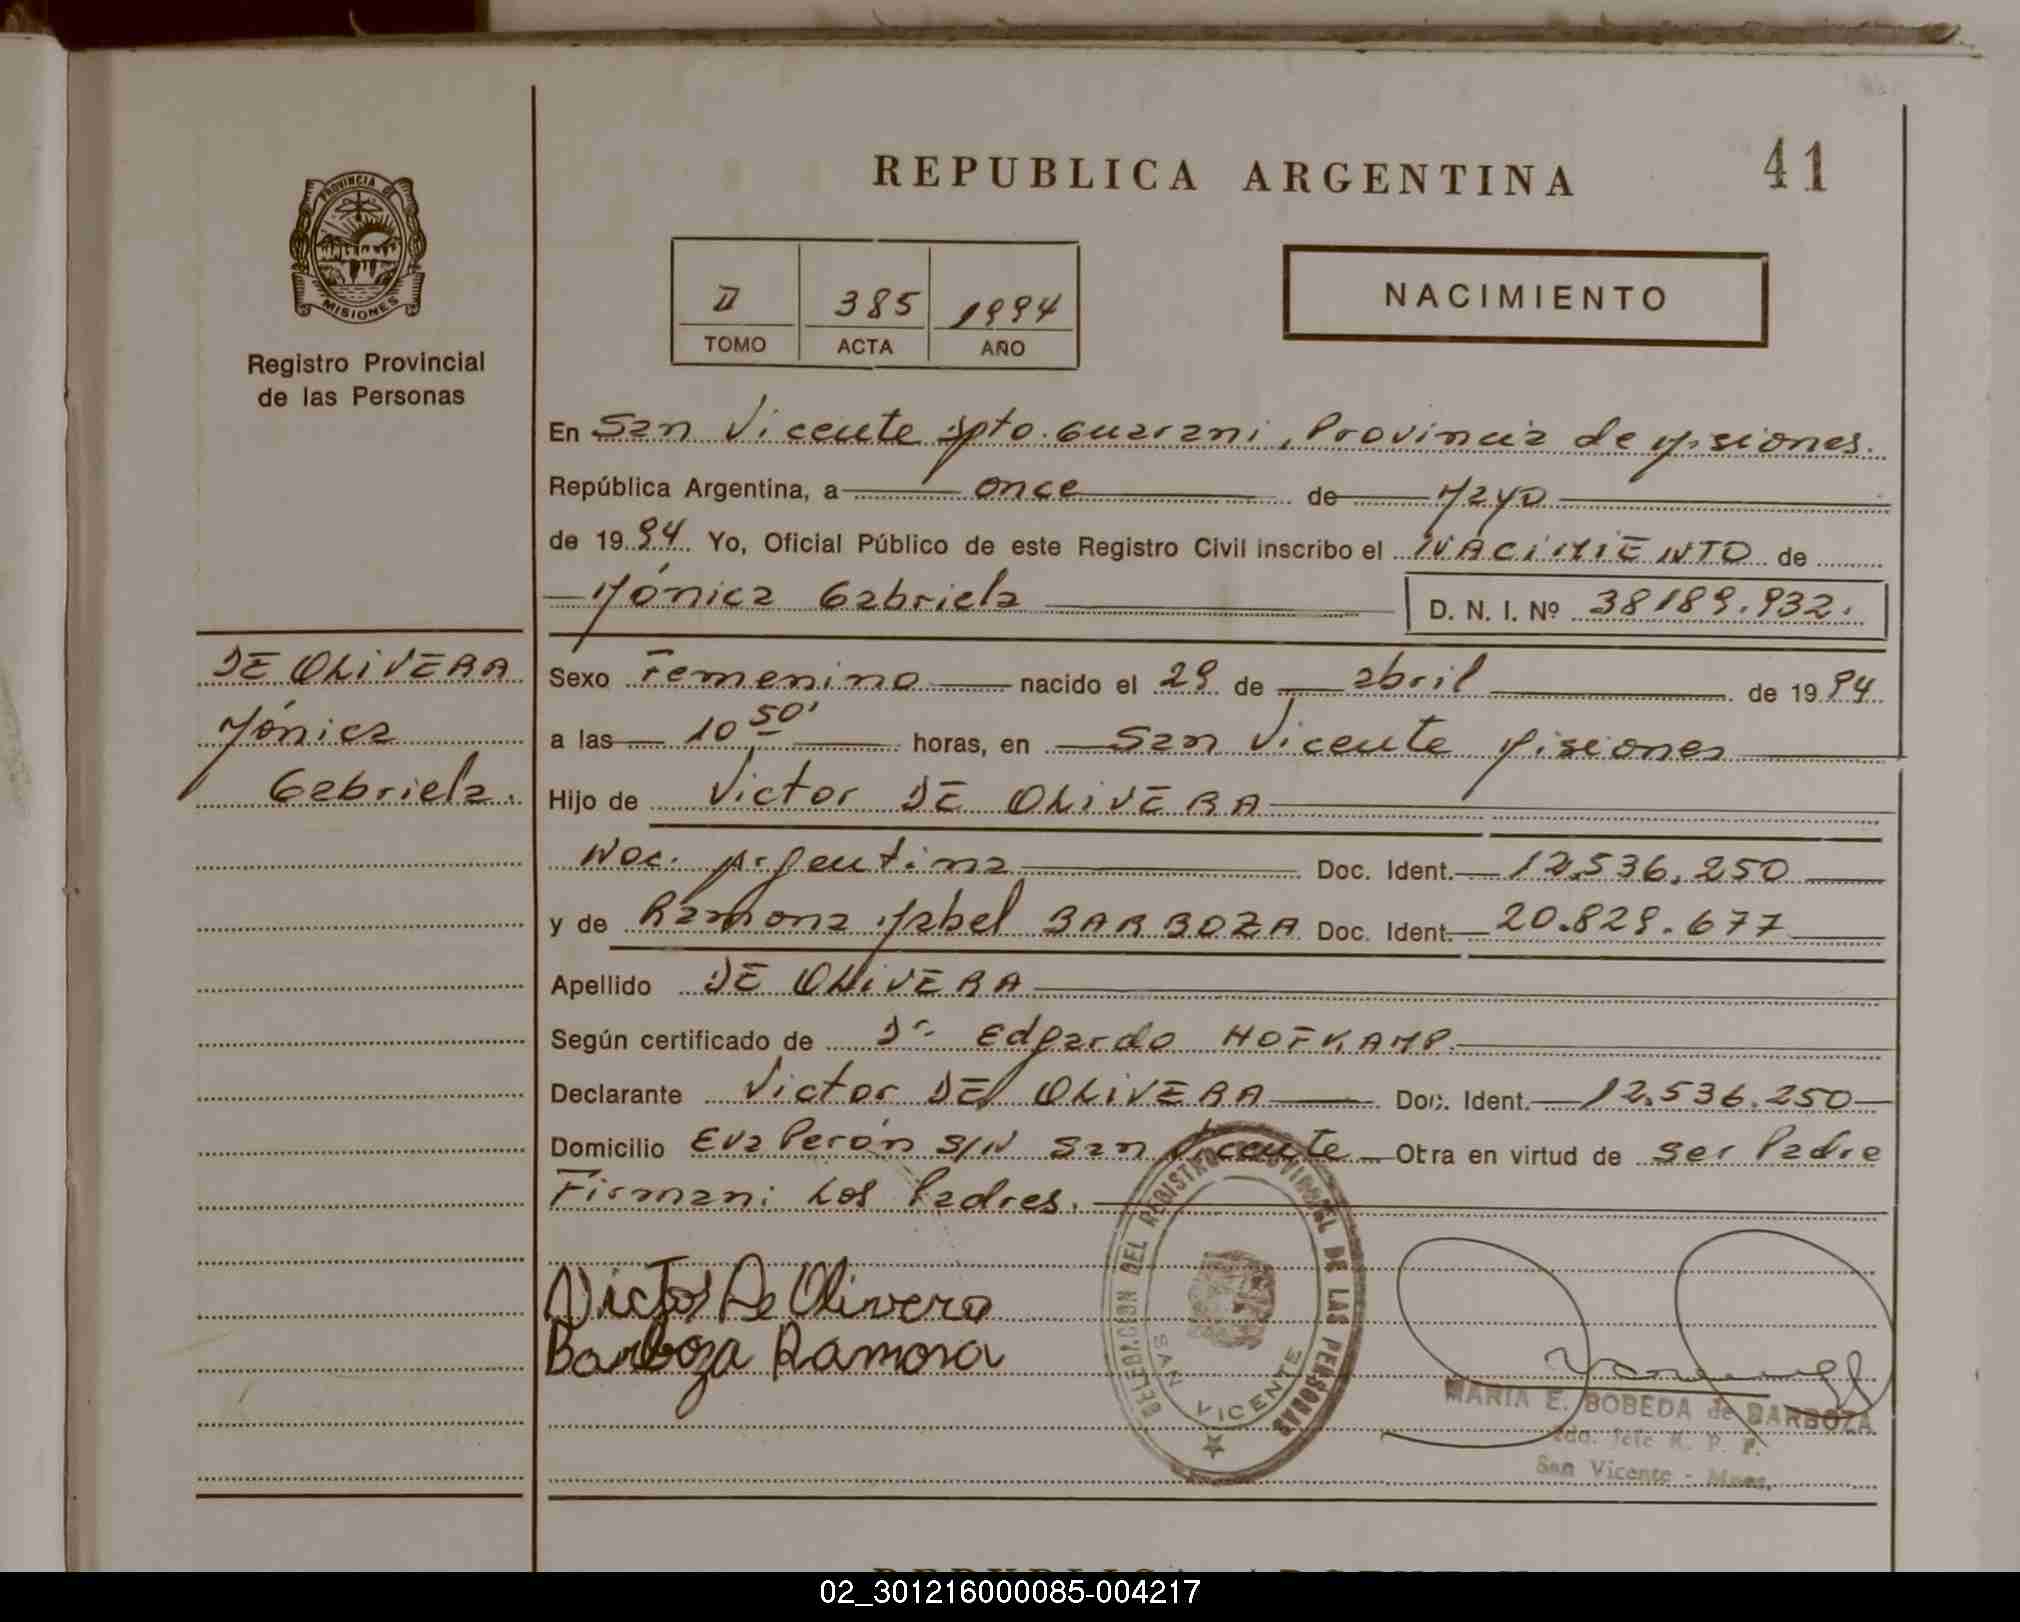 REPUBLICA ARGENTINA
41
PROVINCIA DE
MISIONES
Registro Provincial
de las Personas
II 385 1994
TOMO ACTA AÑO
NACIMIENTO
En San Vicente Dpto. Guarani, Provincia de Misiones.
República Argentina, a once de Mayo
de 1994 Yo, Oficial Público de este Registro Civil inscribo el NACIMIENTO de
Mónica Gabriela D. N. I. Nº 38189.932.
DE OLIVERA
Mónica
Gabriela.
Sexo Femenino nacido el 29 de abril de 1994
a las 10 50' horas, en San Vicente Misiones
Hijo de Victor DE OLIVERA
Nac. Argentina Doc. Ident. 12.536.250
y de Ramona Mabel BARBOZA Doc. Ident. 20.829.677
Apellido DE OLIVERA
Según certificado de Dr. Edgardo HOFKAMP.
Declarante Victor DE OLIVERA Doc. Ident. 12.536.250
Domicilio Eva Perón S/N San Vicente Otra en virtud de ser Padre
Firman: Los Padres.
Victor De Olivera
Barboza Ramona
DELEGACION DEL REGISTRO PROVINCIAL DE LAS PERSONAS
SAN VICENTE
MARIA E. BOBEDA de BARBOZA
2do. Jefe R. P. P.
San Vicente - Mnes.
REPUBLICA ARGENTINA
02_301216000085-004217